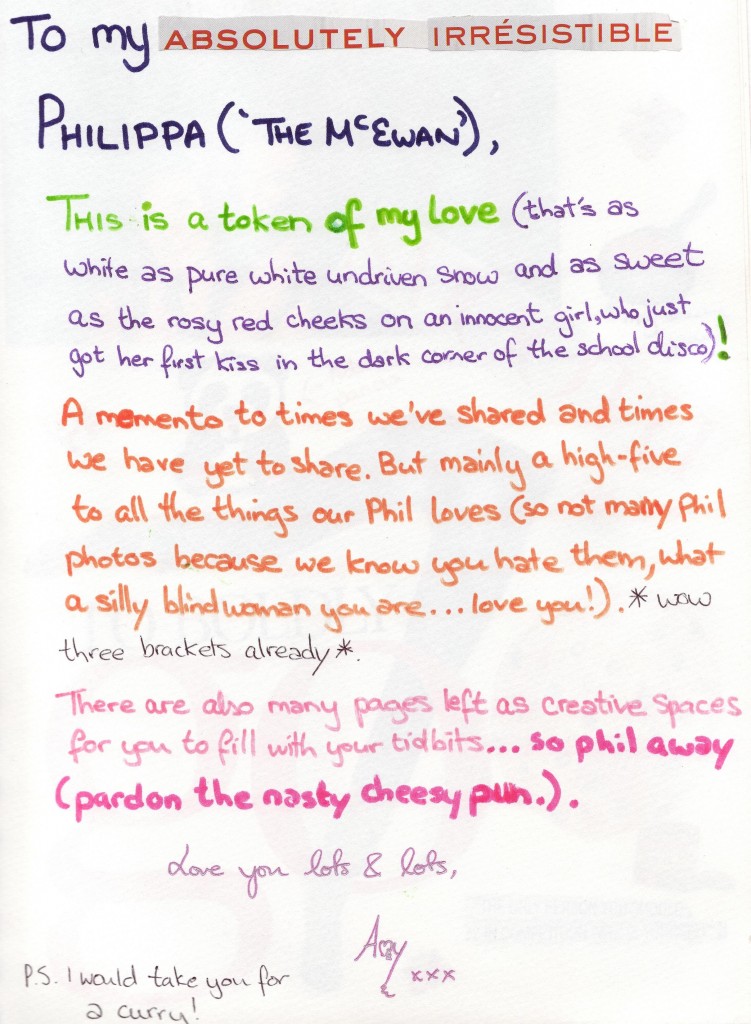 To my ABSOLUTELY IRRÉSISTIBLE
PHILIPPA ('THE McEWAN'),
THIS is a token of my love (that's as
white as pure white undriven snow and as sweet
as the rosy red cheeks on an innocent girl, who just
got her first kiss in the dark corner of the school disco)!
A memento to times we've shared and times
we have yet to share. But mainly a high-five
to all the things our Phil loves (so not many Phil
photos because we know you hate them, what
a silly blind woman you are... love you!). * wow
three brackets already *.
There are also many pages left as creative spaces
for you to fill with your tidbits... so phil away
(pardon the nasty cheesy pun.).
Love you lots & lots,
Amy
xxx
P.S. I would take you for
a curry!